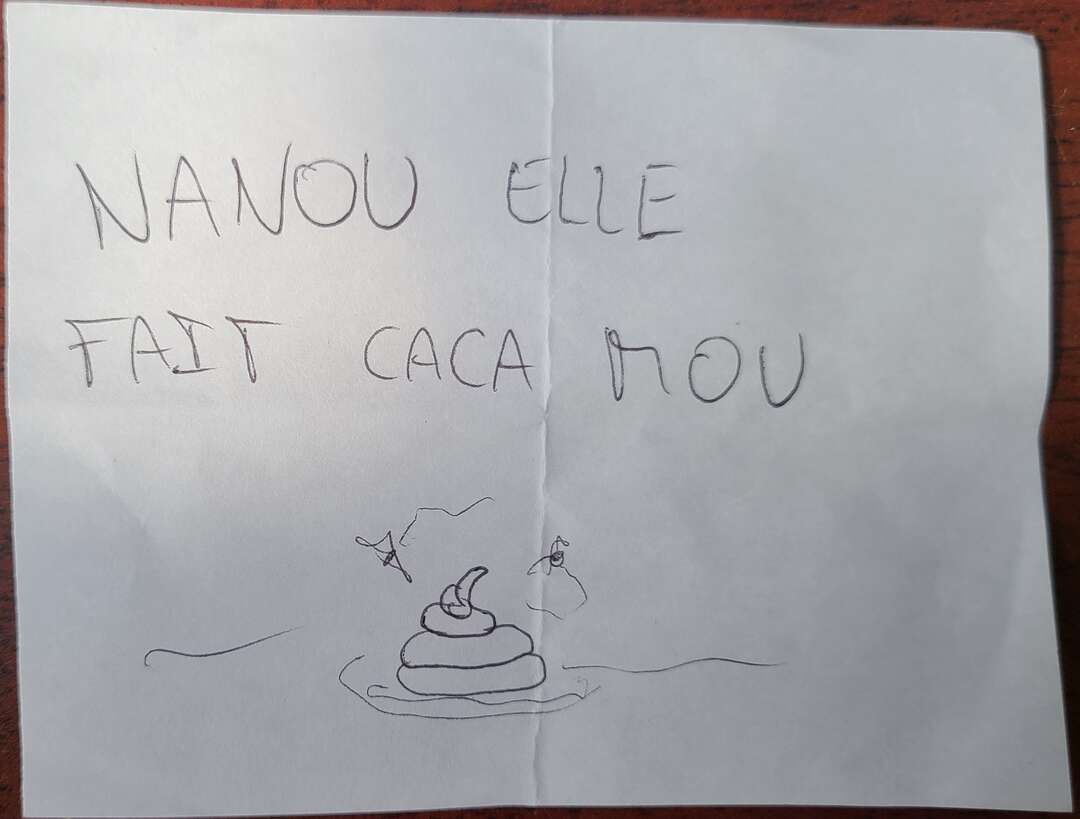 NANOU ELLE
FAIT CACA MOU